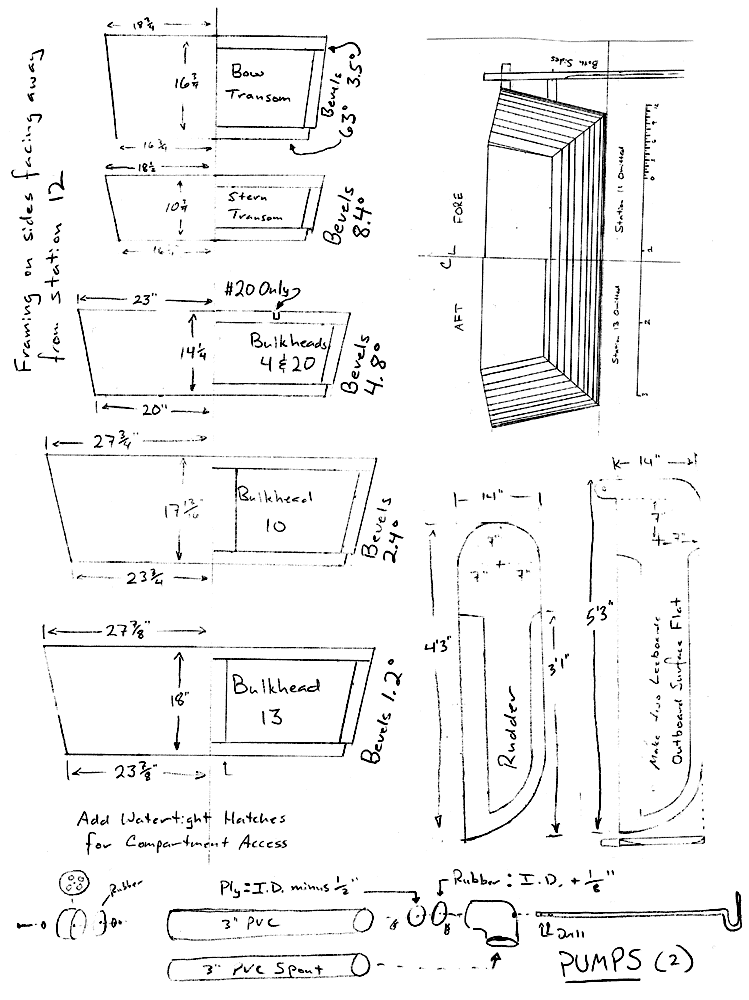 Framing on sides facing away
from station 12
18 3/4
16 3/4
Bow
Transom
Bevels
3.5°
63°
16 3/4
18 1/2
10 3/4
Stern
Transom
Bevels
8.4°
23"
#20 Only
14 1/4
Bulkheads
4 & 20
Bevels
4.8°
20"
27 3/4"
17 13/16"
Bulkhead
10
Bevels
2.4°
23 3/4
27 7/8"
18"
Bulkhead
13
Bevels 1.2°
23 7/8"
Add Watertight Hatches
for Compartment Access
Both Sides
FORE
CL
AFT
Station 11 Omitted
Station 13 Omitted
0
1
2
3
14"
7"
7"
7"
4'3"
3'1"
Rudder
14"
7"
7"
5'3"
Make two Leeboards
Outboard Surface Flat
Rubber
Ply = I.D. minus 1/2"
Rubber: I.D. + 1/8"
3" PVC
Drill
3" PVC Spout
PUMPS (2)